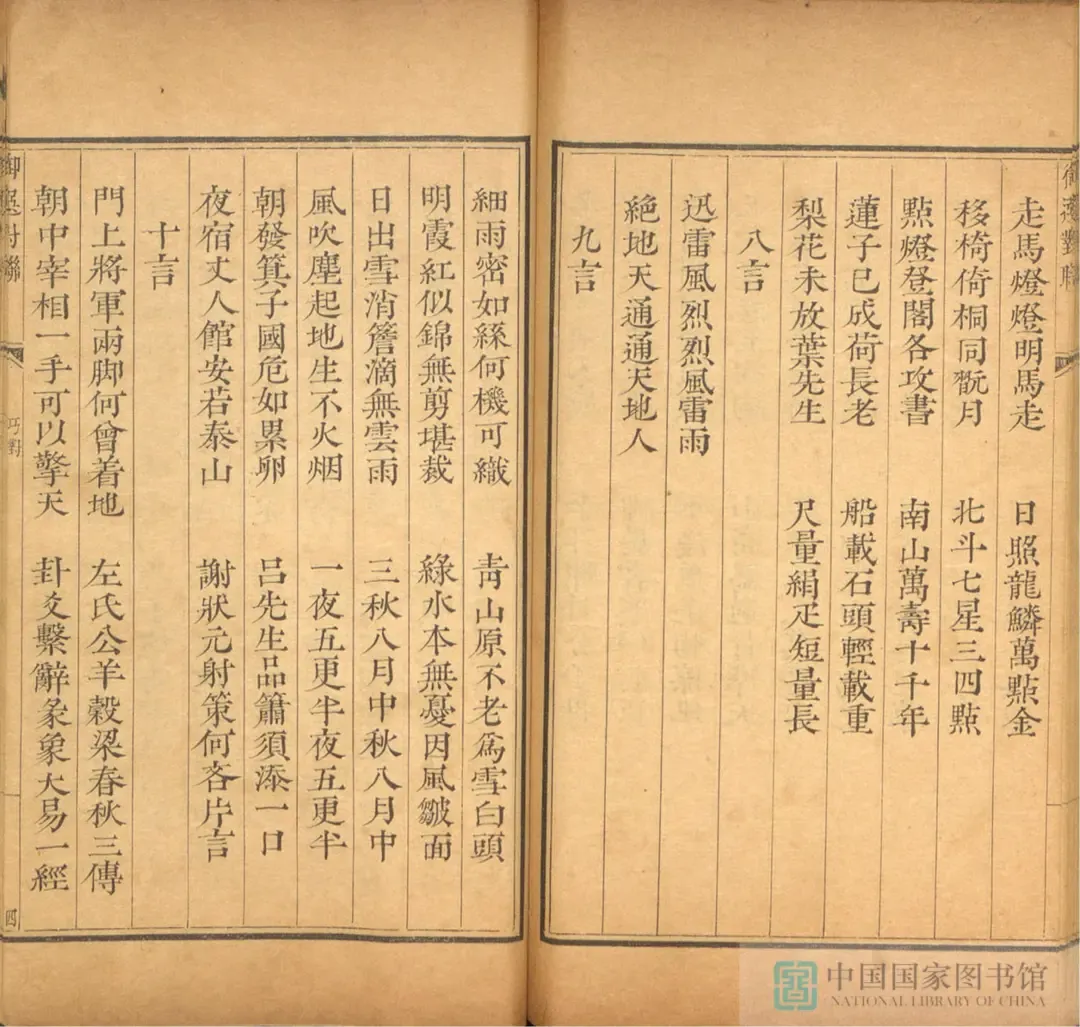 御選對聯
走馬燈燈明馬走　日照龍鱗萬點金
移椅倚桐同翫月　北斗七星三四點
點燈登閣各攻書　南山萬壽十千年
蓮子已成荷長老　船載石頭輕載重
梨花未放葉先生　尺量絹疋短量長
八言
迅雷風烈烈風雷雨
絕地天通通天地人
九言
細雨密如絲何機可織　靑山原不老爲雪白頭
明霞紅似錦無剪堪裁　綠水本無憂因風皺面
日出雪消簷滴無雲雨　三秋八月中秋八月中
風吹塵起地生不火烟　一夜五更半夜五更半
朝發箕子國危如累卵　呂先生品簫須添一口
夜宿丈人館安若泰山　謝狀元射策何吝片言
十言
門上將軍兩脚何曾着地　左氏公羊穀梁春秋三傳
朝中宰相一手可以擎天　卦爻繫辭彖象大易一經
御選對聯
巧對
四
中国国家图书馆
NATIONAL LIBRARY OF CHINA